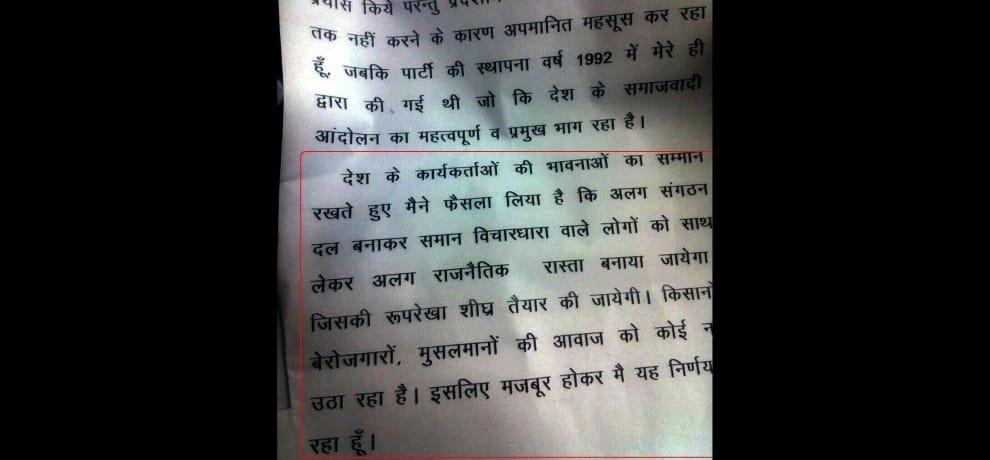 प्रयास किये परन्तु
तक नहीं करने के कारण अपमानित महसूस कर रहा
हूँ, जबकि पार्टी की स्थापना वर्ष 1992 में मेरे ही
द्वारा की गई थी जो कि देश के समाजवादी
आंदोलन का महत्वपूर्ण व प्रमुख भाग रहा है।
देश के कार्यकर्ताओं की भावनाओं का सम्मान
रखते हुए मैने फैसला लिया है कि अलग संगठन
दल बनाकर समान विचारधारा वाले लोगों को साथ
लेकर अलग राजनैतिक रास्ता बनाया जायेगा
जिसकी रूपरेखा शीघ्र तैयार की जायेगी। किसानों
बेरोजगारों, मुसलमानों की आवाज को कोई न
उठा रहा है। इसलिए मजबूर होकर मै यह निर्णय
रहा हूँ।